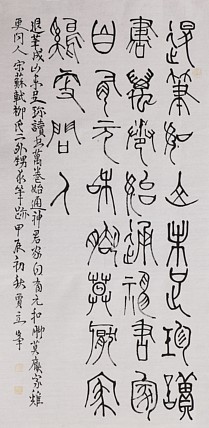 退筆如山未足珍讀
書萬卷始通神君家
自有元和腳莫厭家
雞更問人
退筆成山未足珍讀書萬卷始通神君家自有元和腳莫厭家雞
更問人宋蘇軾柳氏二外甥求筆跡甲初秋賈立